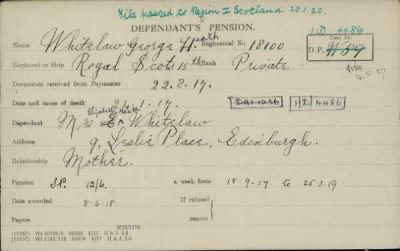 File passed to Region I Scotland 20.1.20.
DEFENDANT'S PENSION.
1.D 4486
Case No.
D.P. 1139
Name Whitelaw George Heath Regimental No. 18100
Regiment or Ship Royal Scots 15th Rank Private
Documents received from Paymaster 22.8.17
Date and cause of death .1.17.
1.D 4486
Dependant Mrs Whitelaw
Address 9, Leslie Place, Edinburgh.
Relationship Mother.
Pension S.P. 12/6 a week from 18-9-17 to 25.3.19
Date awarded 8-6-18. If refused reason
Papers